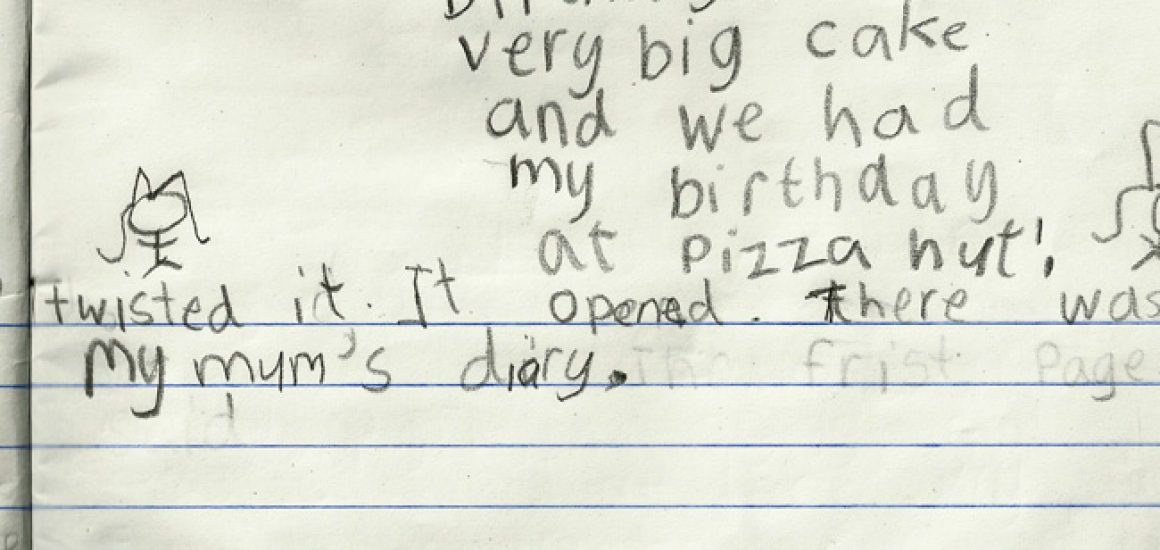 very big cake
and we had
my birthday
at pizza hut!
twisted it. It opened. there was
my mum's diary. The frist Page